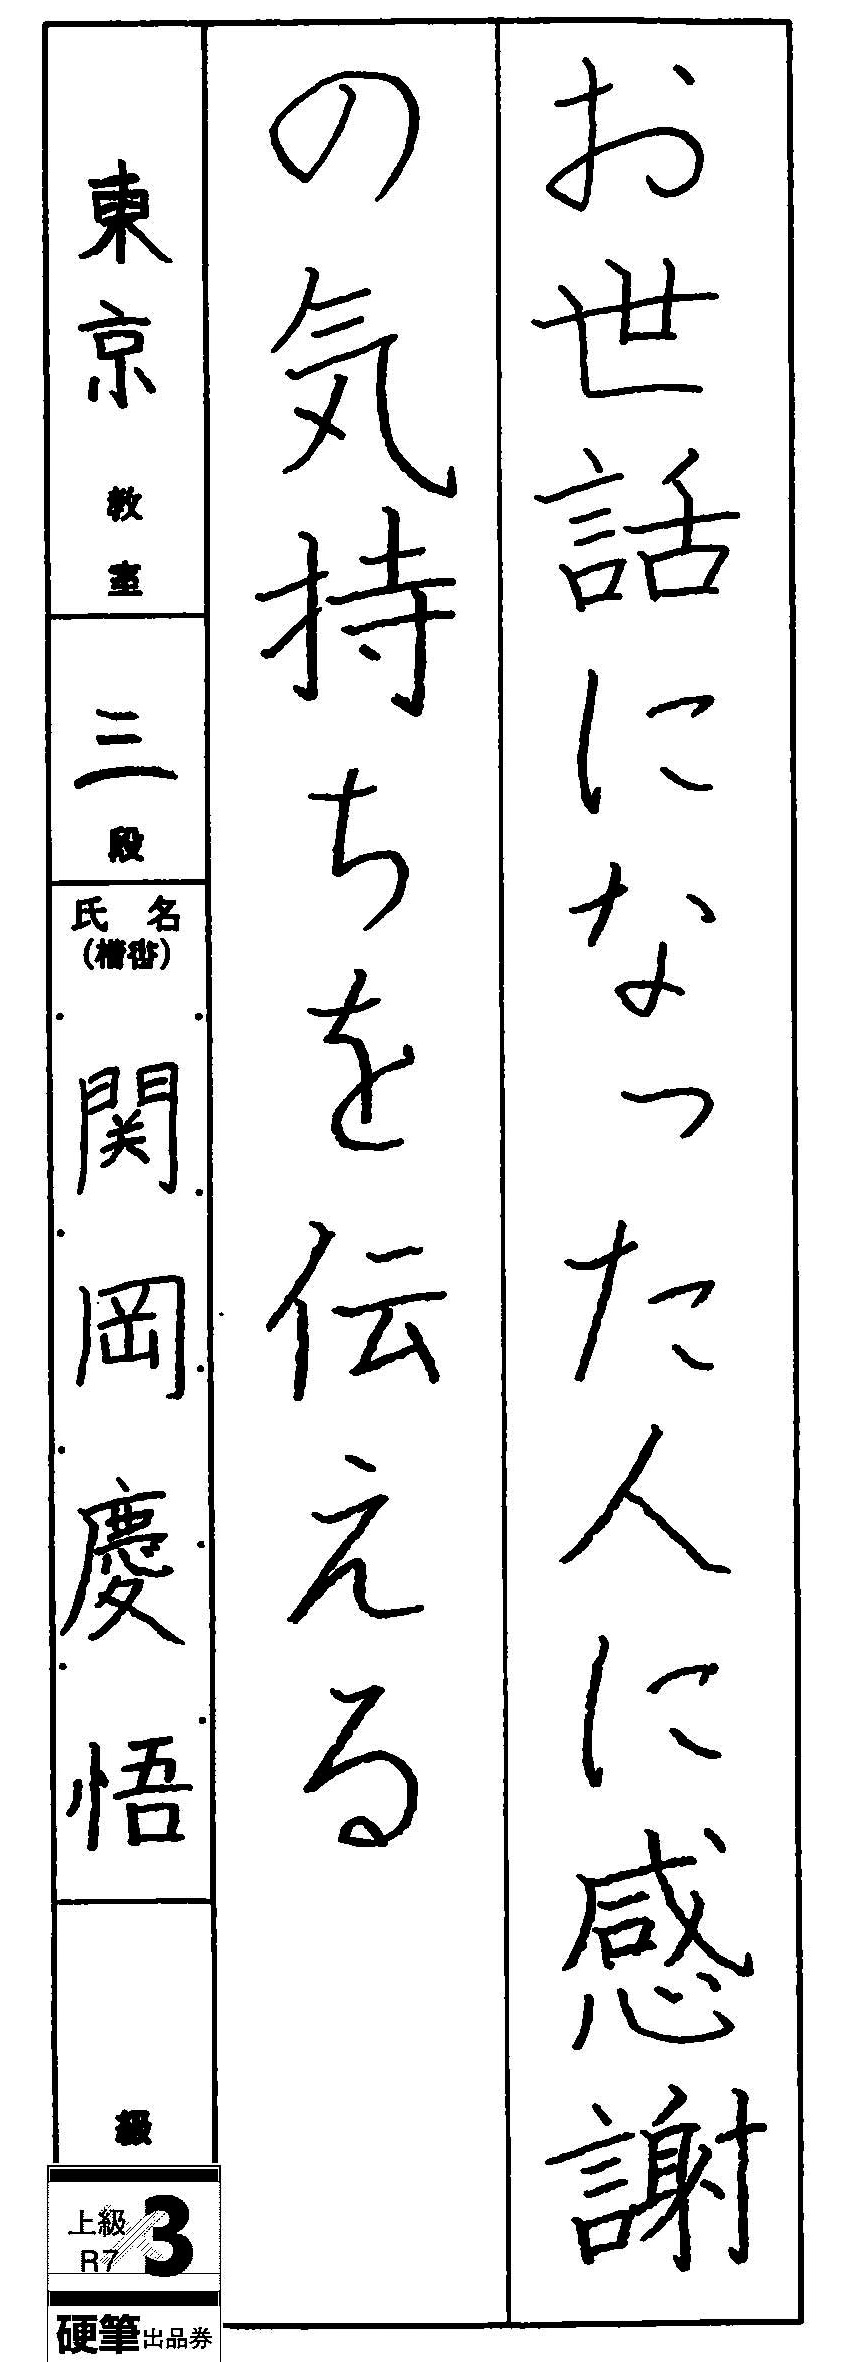 お世話になった人に感謝
の気持ちを伝える
東京 教室
三 段
氏 名
(楷書)
関岡慶悟
級
上級
R7
3
硬筆出品券